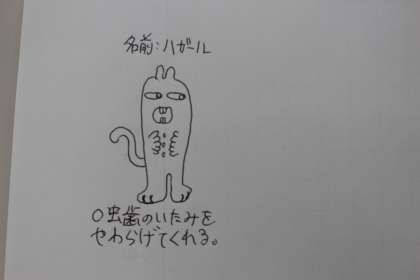 名前:ハガール
○虫歯のいたみを
やわらげてくれる。